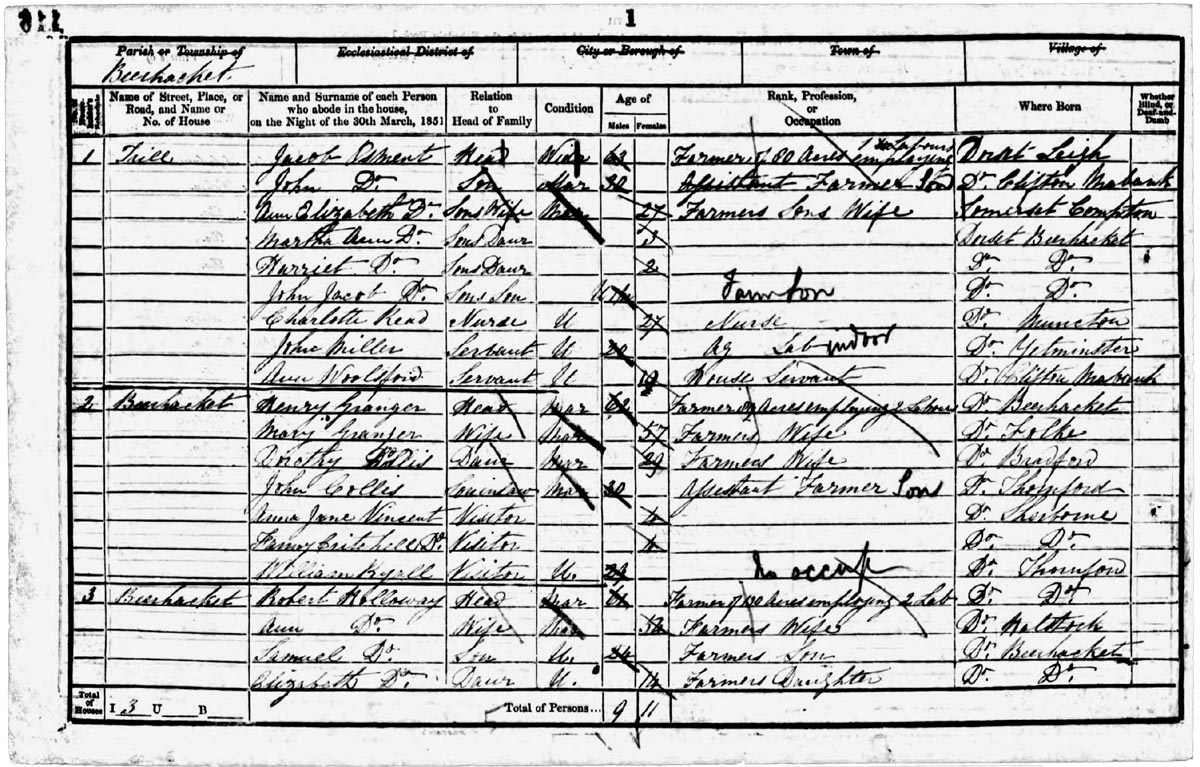 1
Parish or Township of Ecclesiastical District of City or Borough of Town of Village of
Beerhacket
Name of Street, Place, or Road, and Name or No. of House Name and Surname of each Person who abode in the house, on the Night of the 30th March, 1851 Relation to Head of Family Condition Age of Males Females Rank, Profession, or Occupation Where Born Whether Blind, or Deaf-and-Dumb
1 Trill Jacob Osment Head Widr 63 Farmer of 80 Acres employing Dorset Leigh
John Do. Son Mar 30 Assistant Farmer Son Do. Clifton Mabank
Ann Elizabeth Do. Sons Wife Mar 27 Farmers Sons Wife Somerset Compton
Martha Ann Do. Sons Daur 3 Dorset Beerhacket
Harriet Do. Sons Daur 2 Do. Do.
John Jacob Do. Sons Son U Do. Do.
Charlotte Read Nurse U 27 Nurse Do.
John Miller Servant U 20 Ag Lab indoor Do. Yetminster
Ann Woolsford Servant U 19 House Servant Do. Clifton Mabank
2 Beerhacket Henry Granger Head Mar Farmer Acres employing 2 Labour Do. Beerhacket
Mary Granger Wife Mar 57 Farmers Wife Do. Folke
Dorothy Collis Daur Mar 29 Farmers Wife Do. Bradford
John Collis Soninlaw Mar 30 Assistant Farmer Sons Do. Thornford
Anna Jane Vincent Visitor Do. Sherborne
Fanny Critchell Do. Visitor Do. Do.
William Ryall Visitor U. 29 no occup Do. Thornford
3 Beerhacket Robert Holloway Head Mar 61 Farmer of 130 Acres employing 2 Lab Do. Do.
Ann Do. Wife Mar Farmers Wife Do. Halstock
Samuel Do. Son U. 24 Farmers Son Do. Beerhacket
Elizabeth Do. Daur U. 14 Farmers Daughter Do. Do.
Total of Houses I 3 U B Total of Persons... 9 11